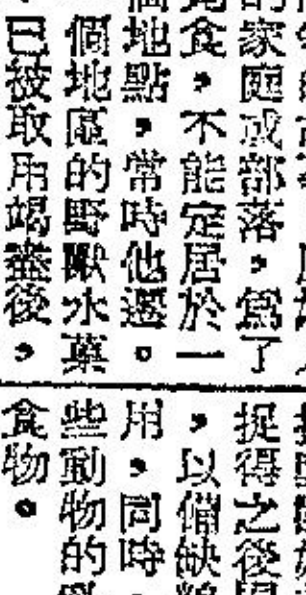 的家庭或部落，爲了
食，不能定居於一
個地點，常時他遷。
個地區的野獸水菓
已被取用竭盡後，
捉得之後
，以備缺
用，同時
些動物的
食物。